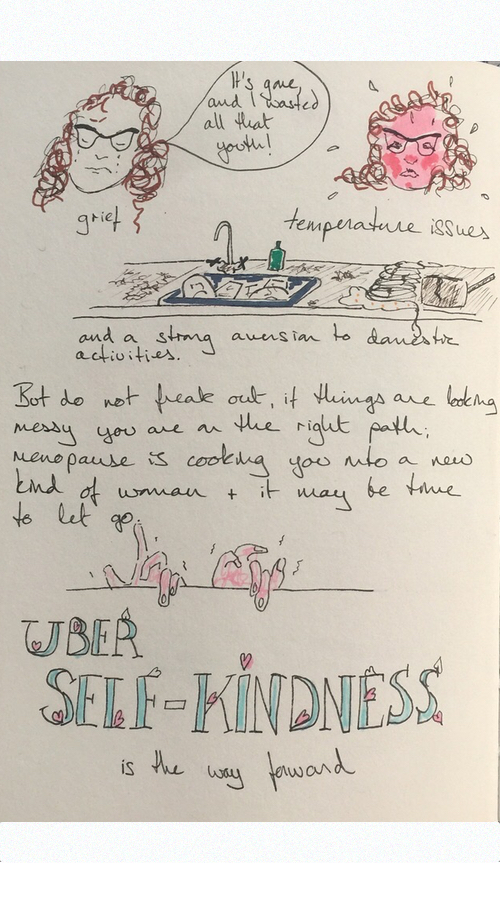 It's gone,
and I wasted
all that
youth!
grief
temperature issues
and a strong aversion to domestic
activities.
But do not freak out, if things are looking
messy you are on the right path;
menopause is cooking you into a new
kind of woman + it may be time
to let go.
UBER
SELF-KINDNESS
is the way forward